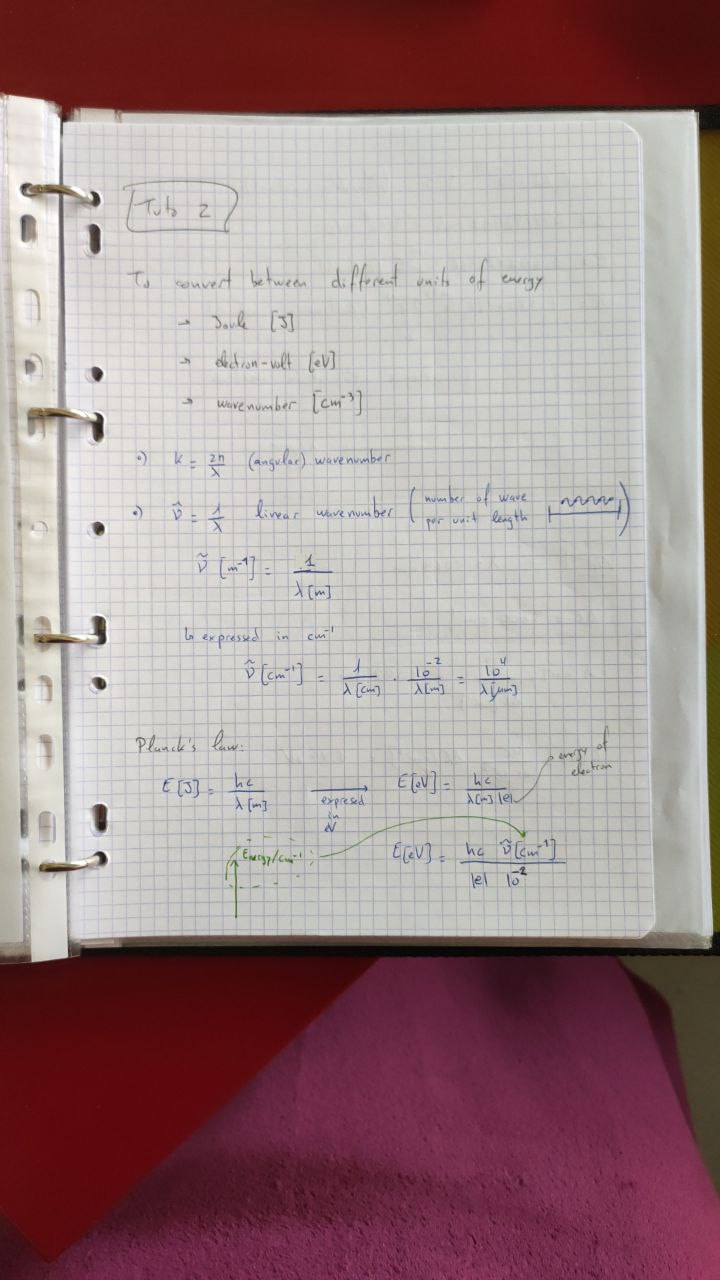 Tuto 2
To convert between different units of energy
→ Joule [J]
→ electron-volt [eV]
→ wavenumber [cm⁻³]
•) k = 2π/λ (angular) wavenumber
•) ṽ = 1/λ linear wavenumber (number of wave per unit length)
ṽ [m⁻¹] = 1/λ[m]
↳ expressed in cm⁻¹
ṽ [cm⁻¹] = 1/λ[cm] · 10⁻²/λ[m] = 10⁴/λ[μm]
Planck's law:
E[J] = hc/λ[m] → expresed in eV E[eV] = hc/λ[m]|e| energy of electron
Energy/cm⁻¹ E[eV] = hc ṽ[cm⁻¹]/|e| 10⁻²